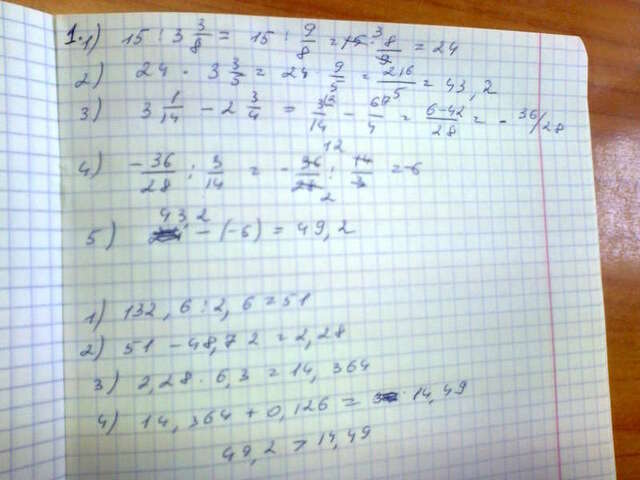 1. 1) 15 : 3 3/8 = 15 : 9/8 = 15 · 8/9 = 24
2) 24 · 3 3/5 = 24 · 9/5 = 216/5 = 43,2
3) 3 1/14 - 2 3/4 = 3/14 - 6/4 = 6-42/28 = - 36/28
4) -36/28 : 3/14 = - 36/28 : 14/3 = -6
5) 43 2 - (-6) = 49,2
1) 132,6 : 2,6 = 51
2) 51 - 48,72 = 2,28
3) 2,28 · 6,3 = 14,364
4) 14,364 + 0,126 = 14,49
49,2 > 14,49